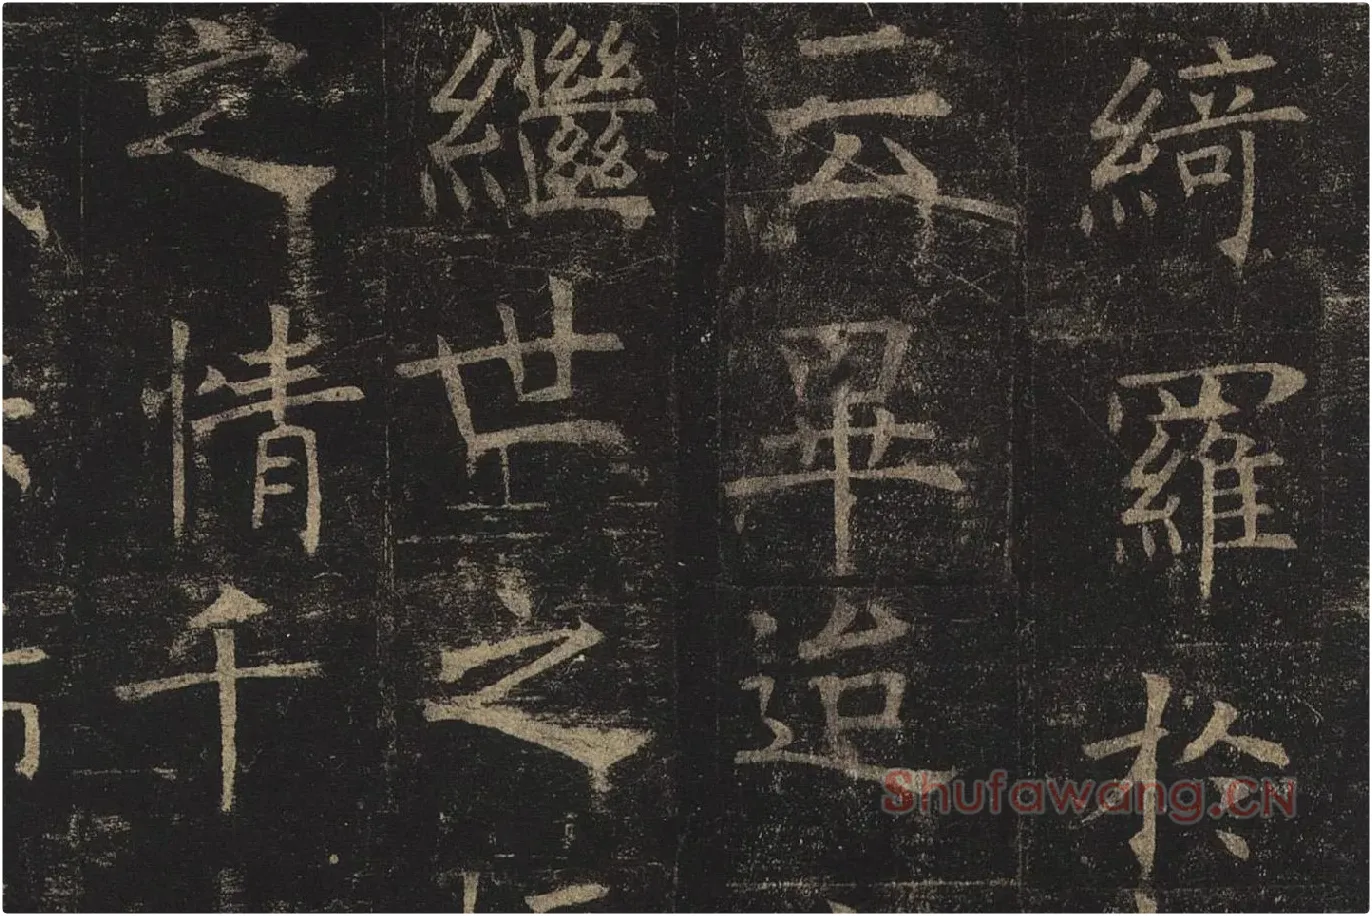 綺羅於
云畢迨
繼世之
之情千
Shufawang.CN